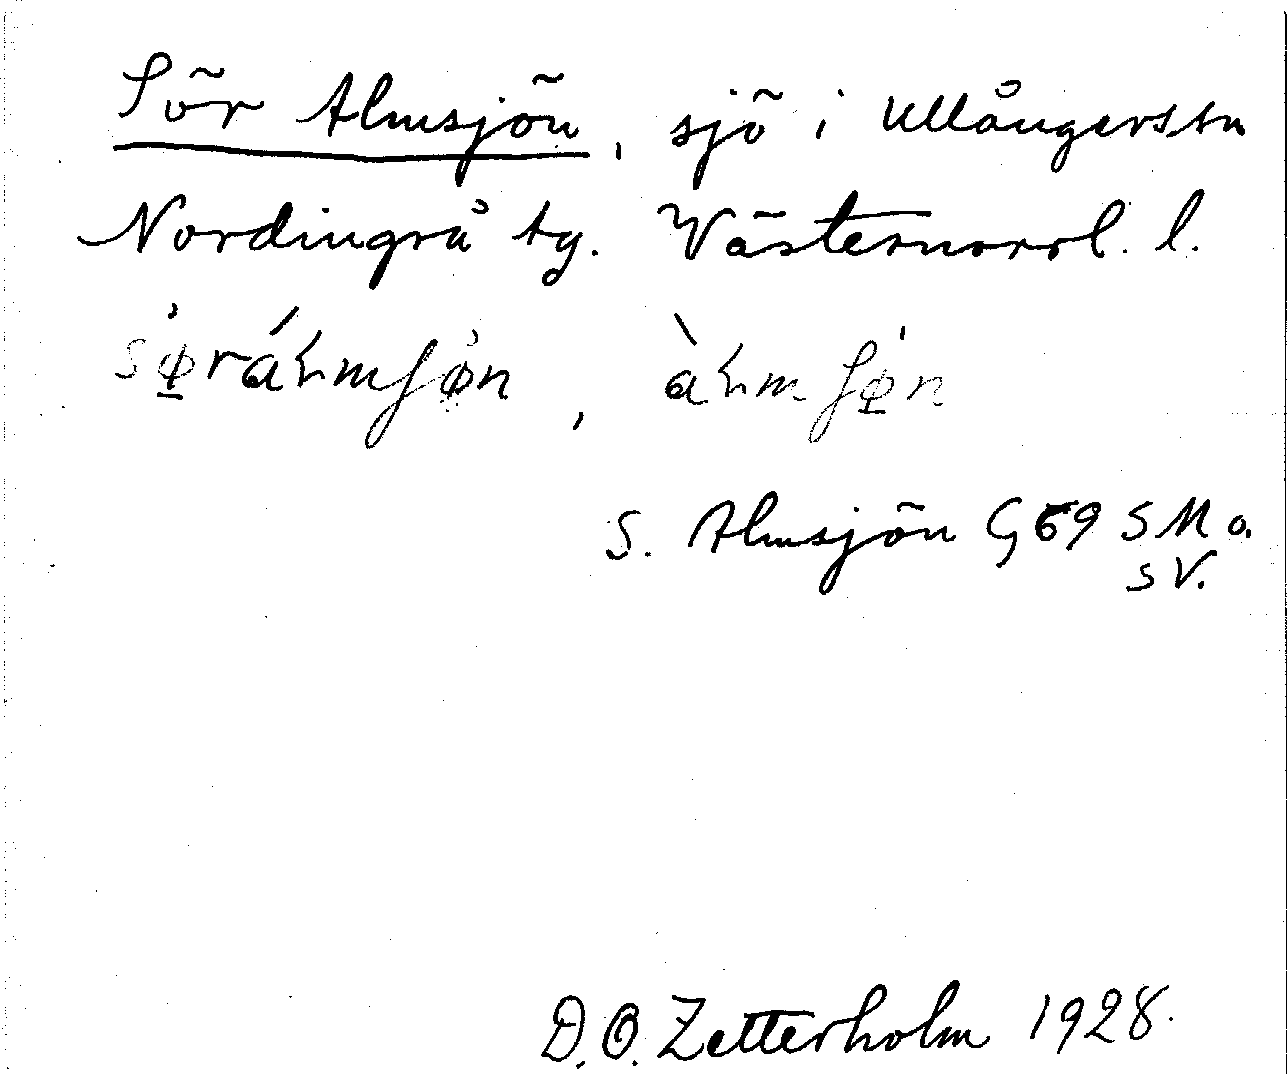 Sör Almsjön, sjö i Ullångers sn
Nordingrå tg. Västernorrl. l.
S. Almsjön G 69 SM o.
SV.
D. O. Zetterholm 1928.